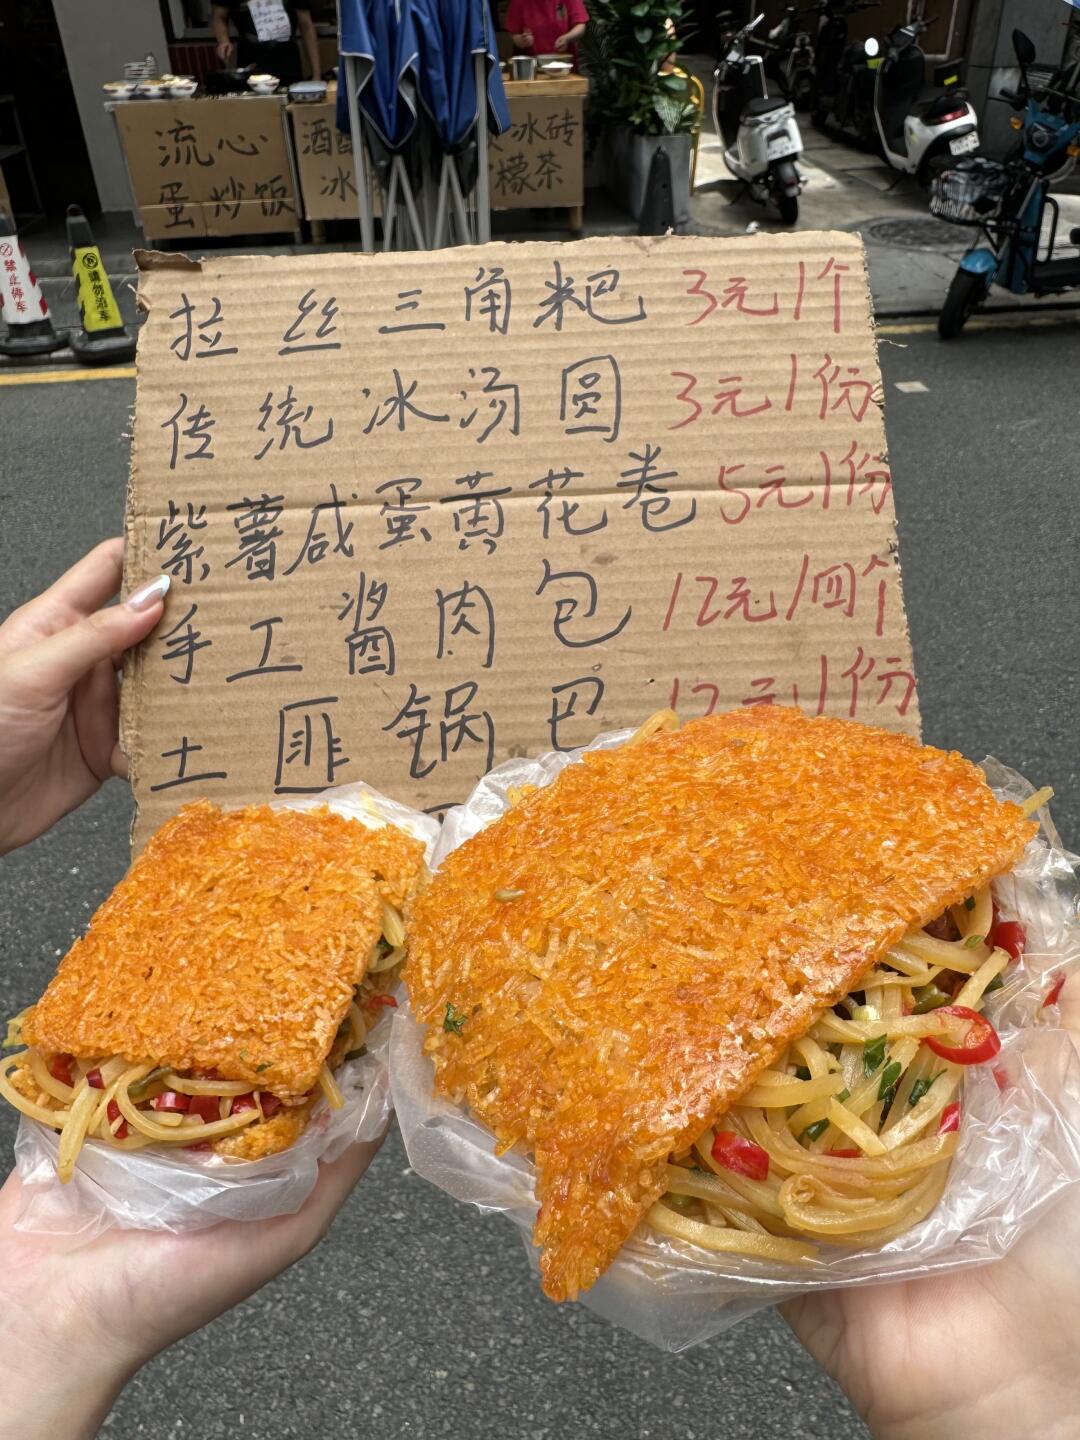 流心
蛋炒饭
酒酿
冰
冰砖
柠檬茶
禁止停车
请勿泊车
拉丝三角粑 3元/个
传统冰汤圆 3元/份
紫薯咸蛋黄花卷 5元/份
手工酱肉包 12元/四个
土匪锅巴 12元/份